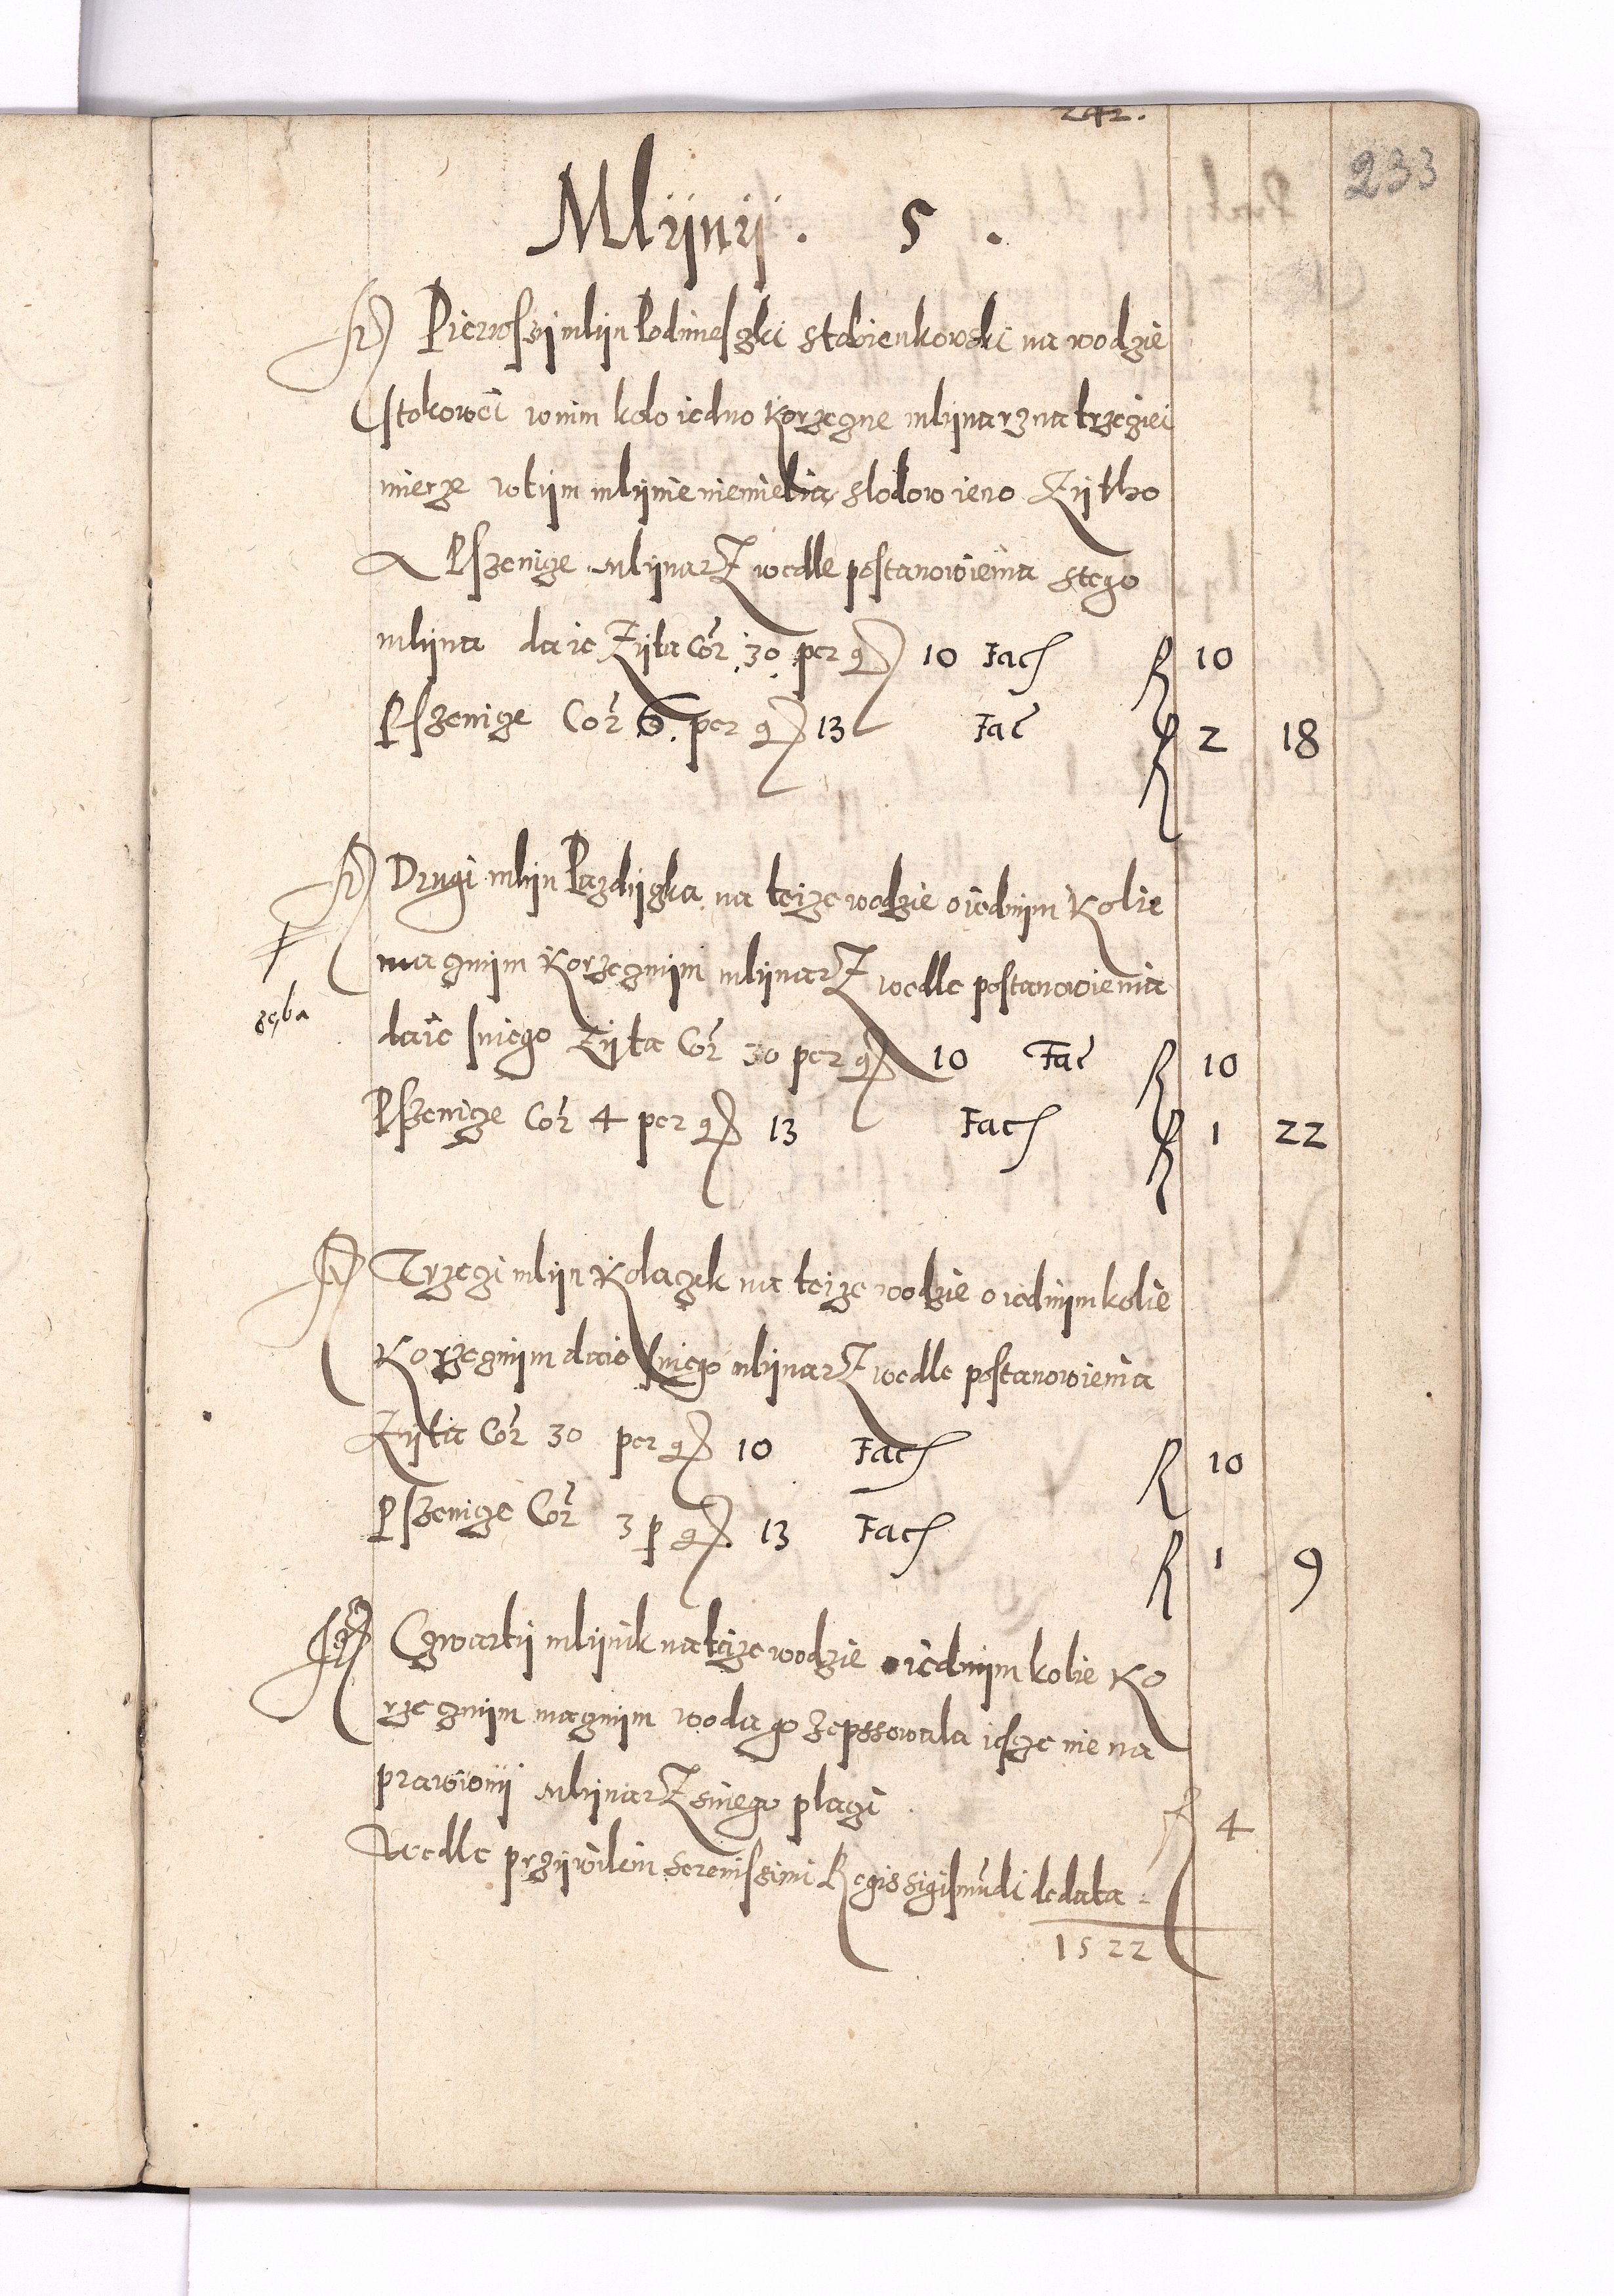 242.
233
Mlijnij . 5 .
Pierwsſzij mlijn Podimeſzki Stdzienkowski na wodzie
Stokowei wnim kolo iedno Korzeczne mlijnarz na trzeciei
mierze wtijm mlijnie niemielią slodow ieno Zijtho
Pſzenicze mlijnarZ wedle poſtanowienia stego
mlijna daie Zijta Cor 30 per g 10 Fach R 10
Pſzenicze Cor 6. per g 13 Fac R 2 18
Drugi mlijn Pazdijrka na teize wodzie o iednijm Kolie
magnijm Korzecznijm mlijnarZ wedle poſtanowienia
zęba
daie ſniego Zijta Cor 30 per g 10 Fac R 10
Pſzenicze Cor 4 per g 13 Fach R 1 22
Trzeci mlijn Kolaczek na teize wodzie o iednijm kolie
Korzecznijm daie ſniego mlijnarZ wedle poſtanowienia
Zijta Cor 30 per g 10 Fach R 10
Pſzenicze Cor 3 p g 13 Fach R 1 9
Czwartij mlijnik na teize wodzie o iednijm kolie Ko
rzecznijm magnijm woda go zepssowala ieſzcze nie na
prawionij mlijnarZ sniego placi R 4
Wedle przijwileiu Serenissimi Regis Sigiſmudi de data
1522